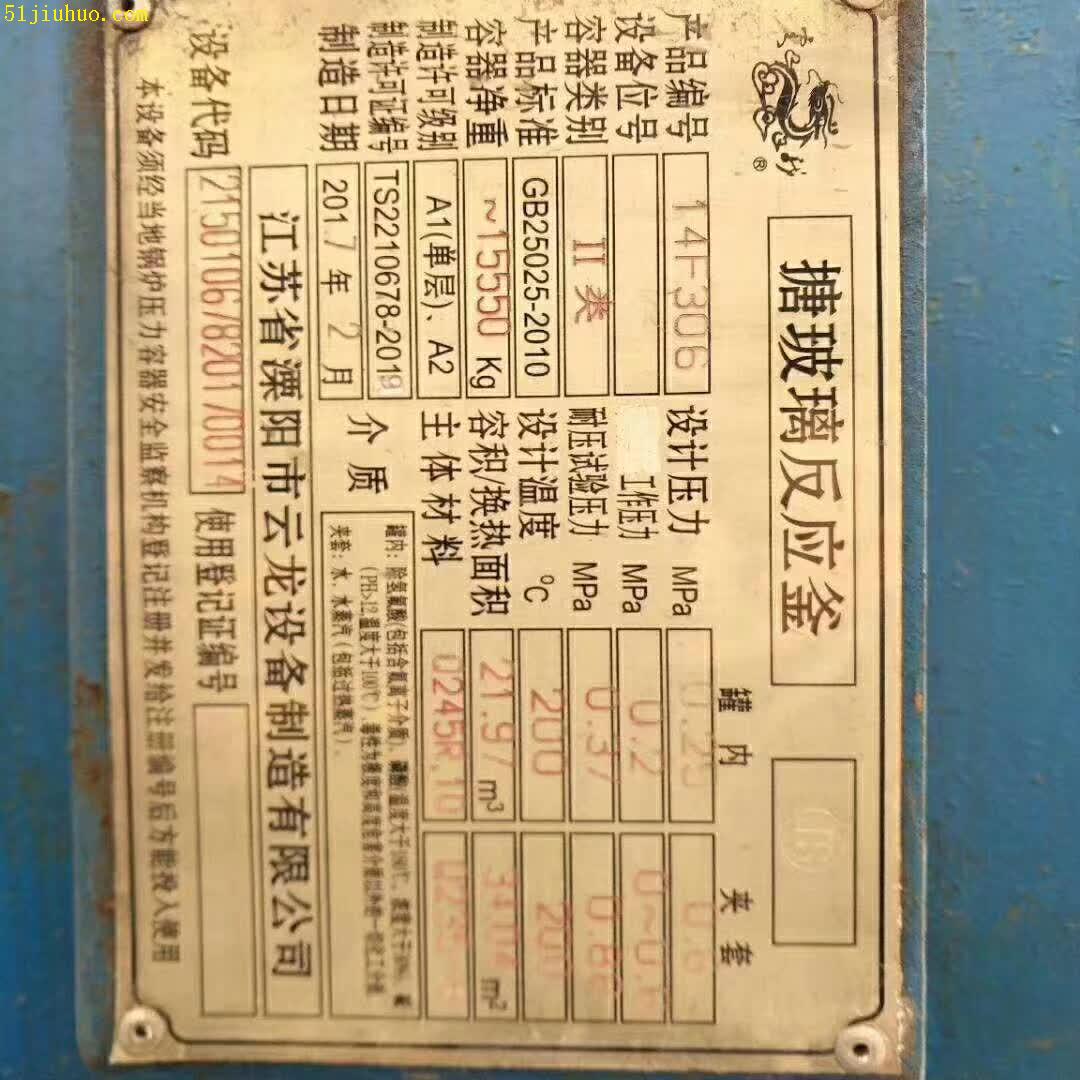 51jiuhuo.com
®
搪玻璃反应釜
罐内 夹套
产品编号 14F306 设计压力 MPa 0.25 0.6
设备位号 工作压力 MPa 0.2 0~0.6
容器类别 II类 耐压试验压力 MPa 0.37 0.86
产品标准 GB25025-2010 设计温度 ℃ 200 200
容器净重 ~15550 Kg 容积/换热面积 21.97 m³ 34.04 m²
制造许可级别 A1(单层)、A2 主体材料 Q245R,10
制造许可证编号 TS2210678-2019 介质 罐内:除氢氟酸(包括含氟离子介质)、
(PH>12,温度大于100℃)、
制造日期 2017年2月 夹套:水、水蒸汽(包括过热蒸汽)。
江苏省溧阳市云龙设备制造有限公司
设备代码 21501067820170014 使用登记证编号
本设备须经当地锅炉压力容器安全监察机构登记注册并发给注册编号后方能投入使用